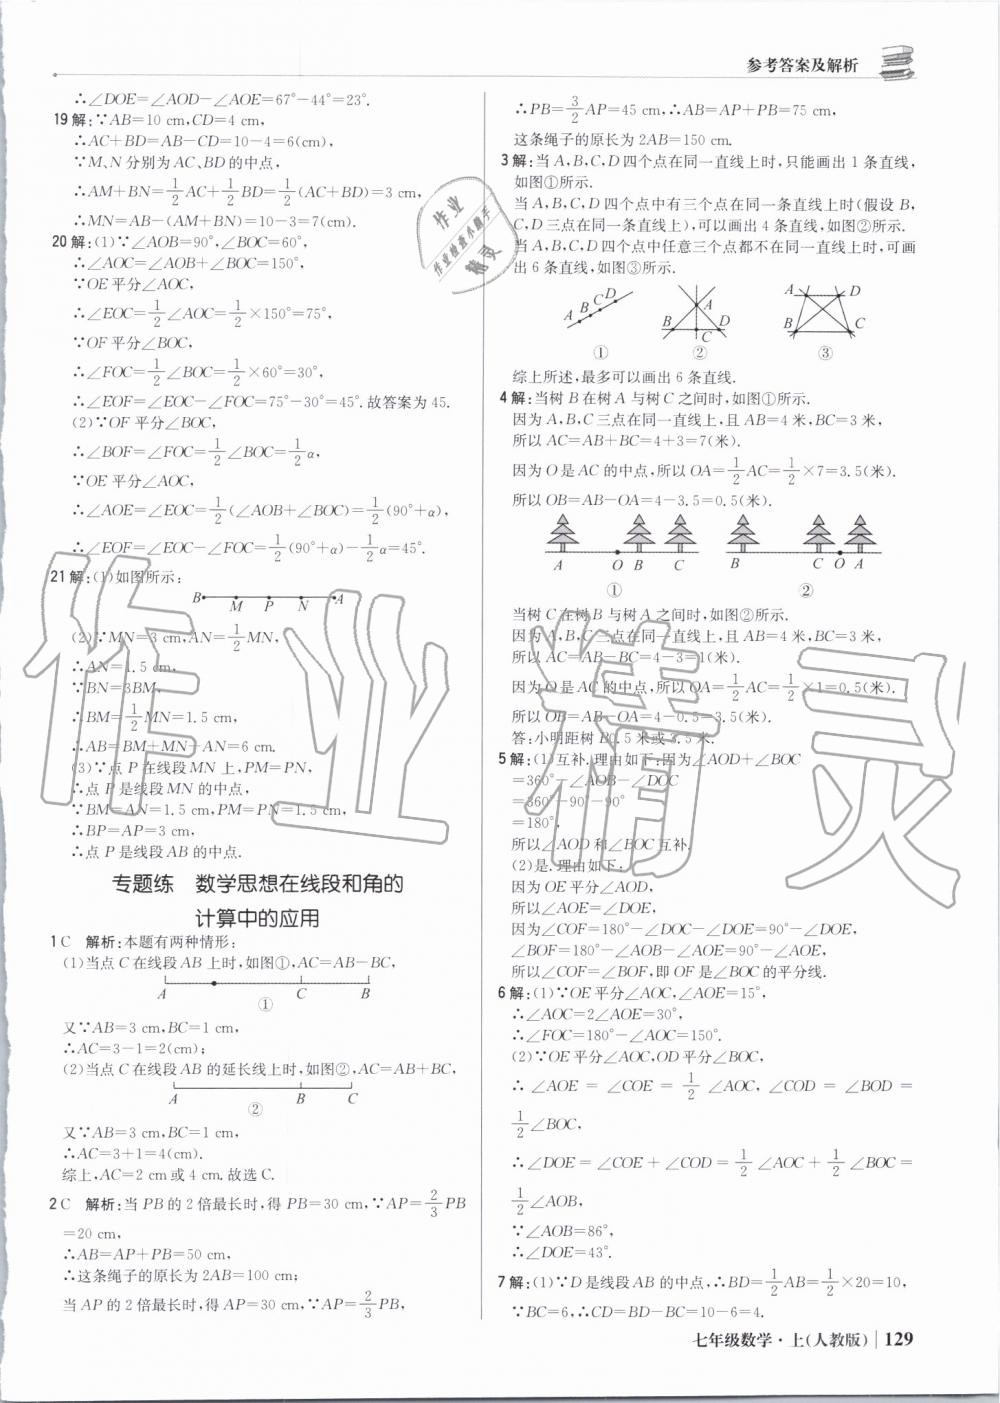 参考答案及解析
∴∠DOE=∠AOD-∠AOE=67°-44°=23°.
19 解:∵AB=10 cm,CD=4 cm,
∴AC+BD=AB-CD=10-4=6(cm),
∵M、N分别为AC、BD的中点,
∴AM+BN=1/2AC+1/2BD=1/2(AC+BD)=3 cm,
∴MN=AB-(AM+BN)=10-3=7(cm).
20 解:(1)∵∠AOB=90°,∠BOC=60°,
∴∠AOC=∠AOB+∠BOC=150°,
∵OE平分∠AOC,
∴∠EOC=1/2∠AOC=1/2×150°=75°,
∵OF平分∠BOC,
∴∠FOC=1/2∠BOC=1/2×60°=30°,
∴∠EOF=∠EOC-∠FOC=75°-30°=45°.故答案为45.
(2)∵OF平分∠BOC,
∴∠BOF=∠FOC=1/2∠BOC=1/2α,
∵OE平分∠AOC,
∴∠AOE=∠EOC=1/2(∠AOB+∠BOC)=1/2(90°+α),
∴∠EOF=∠EOC-∠FOC=1/2(90°+α)-1/2α=45°.
21 解:(1)如图所示:
B M P N A
(2)∵MN=3 cm,AN=1/2MN,
∴AN=1.5 cm,
∵BN=3BM,
∴BM=1/2MN=1.5 cm,
∴AB=BM+MN+AN=6 cm.
(3)∵点P在线段MN上,PM=PN,
∴点P是线段MN的中点,
∵BM=AN=1.5 cm,PM=PN=1.5 cm,
∴BP=AP=3 cm,
∴点P是线段AB的中点.
专题练 数学思想在线段和角的
计算中的应用
1 C 解析:本题有两种情形:
(1)当点C在线段AB上时,如图①,AC=AB-BC,
A C B
①
又∵AB=3 cm,BC=1 cm,
∴AC=3-1=2(cm);
(2)当点C在线段AB的延长线上时,如图②,AC=AB+BC,
A B C
②
又∵AB=3 cm,BC=1 cm,
∴AC=3+1=4(cm).
综上,AC=2 cm或4 cm.故选C.
2 C 解析:当PB的2倍最长时,得PB=30 cm,∵AP=2/3PB
=20 cm,
∴AB=AP+PB=50 cm,
∴这条绳子的原长为2AB=100 cm;
当AP的2倍最长时,得AP=30 cm,∵AP=2/3PB,
∴PB=3/2AP=45 cm,∴AB=AP+PB=75 cm,
这条绳子的原长为2AB=150 cm.
3 解:当A,B,C,D四个点在同一直线上时,只能画出1条直线,
如图①所示.
当A,B,C,D四个点中有三个点在同一直线上时(假设B,
C,D三点在同一条直线上),可以画出4条直线,如图②所示.
当A,B,C,D四个点中任意三个点都不在同一直线上时,可画
出6条直线,如图③所示.
A B C D A B C D A D B C
① ② ③
综上所述,最多可以画出6条直线.
4 解:当树B在树A与树C之间时,如图①所示.
因为A,B,C三点在同一直线上,且AB=4米,BC=3米,
所以AC=AB+BC=4+3=7(米).
因为O是AC的中点,所以OA=1/2AC=1/2×7=3.5(米).
所以OB=AB-OA=4-3.5=0.5(米).
A O B C B C O A
① ②
当树C在树B与树A之间时,如图②所示.
因为A,B,C三点在同一直线上,且AB=4米,BC=3米,
所以AC=AB-BC=4-3=1(米).
因为O是AC的中点,所以OA=1/2AC=1/2×1=0.5(米).
所以OB=AB-OA=4-0.5=3.5(米).
答:小明距树B0.5米或3.5米.
5 解:(1)互补.理由如下:因为∠AOD+∠BOC
=360°-∠AOB-∠DOC
=360°-90°-90°
=180°.
所以∠AOD和∠BOC互补.
(2)是.理由如下:
因为OE平分∠AOD,
所以∠AOE=∠DOE,
因为∠COF=180°-∠DOC-∠DOE=90°-∠DOE,
∠BOF=180°-∠AOB-∠AOE=90°-∠AOE,
所以∠COF=∠BOF,即OF是∠BOC的平分线.
6 解:(1)∵OE平分∠AOC,∠AOE=15°,
∴∠AOC=2∠AOE=30°,
∴∠FOC=180°-∠AOC=150°.
(2)∵OE平分∠AOC,OD平分∠BOC,
∴∠AOE=∠COE=1/2∠AOC,∠COD=∠BOD=
1/2∠BOC,
∴∠DOE=∠COE+∠COD=1/2∠AOC+1/2∠BOC=
1/2∠AOB,
∵∠AOB=86°,
∴∠DOE=43°.
7 解:(1)∵D是线段AB的中点,∴BD=1/2AB=1/2×20=10,
∵BC=6,∴CD=BD-BC=10-6=4.
七年级数学·上(人教版) 129
作业
作业检查小助手
精灵
作业精灵